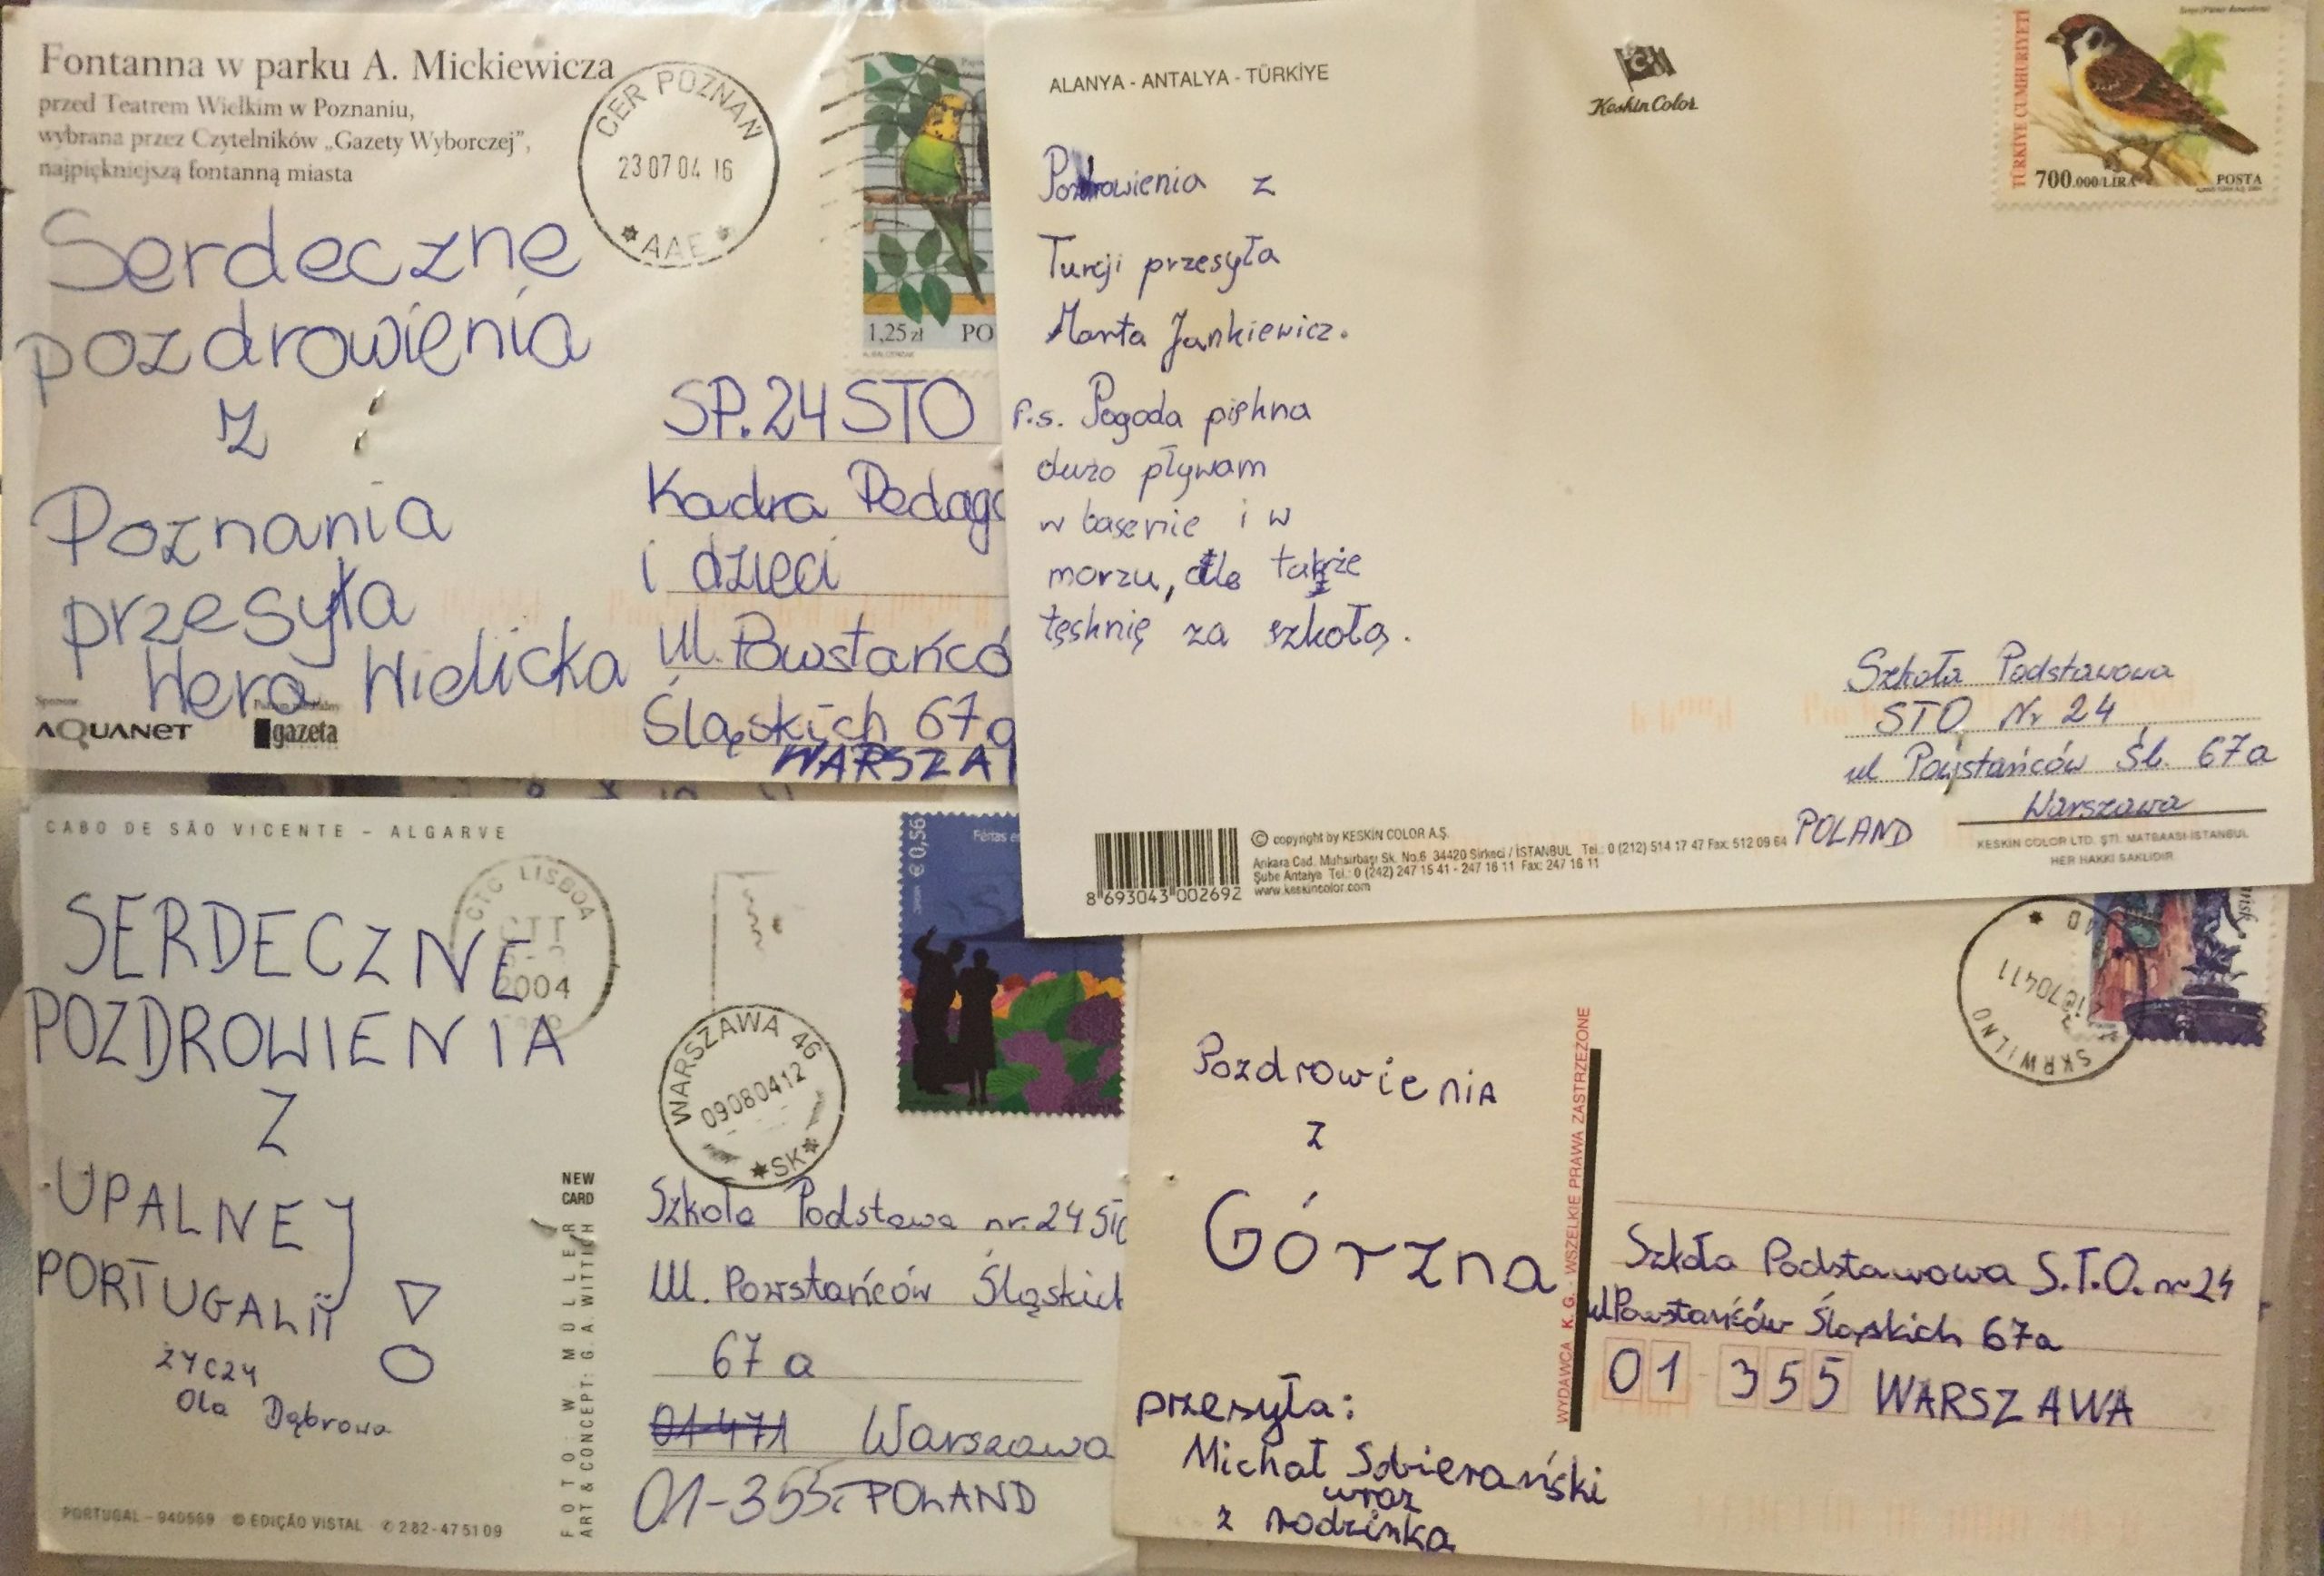 Fontanna w parku A. Mickiewicza
przed Teatrem Wielkim w Poznaniu,
wybrana przez Czytelników „Gazety Wyborczej”,
najpiękniejszą fontanną miasta
CER POZNAŃ
23 07 04 16
* AAE *
1,25 zł PO
Serdeczne
pozdrowienia
z
Poznania
przesyła
Wera Wielicka
AQUANET
gazeta
SP. 24 STO
Kadra Pedago
i dzieci
ul. Powstańcó
Śląskich 67a
WARSZA
ALANYA - ANTALYA - TÜRKİYE
Keskin Color
TÜRKİYE CUMHURİYETİ
700.000/LİRA POSTA
Pozdrowienia z
Turcji przesyła
Marta Jankiewicz.
P.s. Pogoda piękna
dużo pływam
w basenie i w
morzu, ale także
tęsknię za szkołą.
Szkoła Podstawowa
STO Nr 24
ul Powstańców Śl. 67a
Warszawa
POLAND
8 693043 002692
© copyright by KESKİN COLOR A.Ş.
Ankara Cad. Muhsirbaşı Sk. No.6 34420 Sirkeci / İSTANBUL Tel.: 0 (212) 514 17 47 Fax: 512 09 64
Şube Antalya Tel.: 0 (242) 247 15 41 - 247 16 11 Fax: 247 16 11
www.keskincolor.com
KESKİN COLOR LTD. ŞTİ. MATBAASI-İSTANBUL
HER HAKKI SAKLIDIR
CABO DE SÃO VICENTE - ALGARVE
CTC LISBOA
CTT
2004
€ 0,56
Férias
SERDECZNE
POZDROWIENIA
Z
UPALNEJ
PORTUGALII!
ŻYCZY
Ola Dąbrowa
WARSZAWA 46
09080412
*SK*
NEW
CARD
FOTO: W. MÜLLER
ART & CONCEPT: G.A. WITTICH
Szkoła Podstawa nr. 24 STO
Ul. Powstańców Śląskich
67 a
01-471 Warszawa
01-355 POLAND
PORTUGAL - 940569 © EDIÇÃO VISTAL ✆ 282-475109
SKRWILNO
Pozdrowienia
z
Górzna
przesyła:
Michał Sobierański
wraz
z rodzinka
WYDAWCA K.G. - WSZELKIE PRAWA ZASTRZEŻONE
Szkoła Podstawowa S.T.O. nr 24
ul Powstańców Śląskich 67a
01 355 WARSZAWA